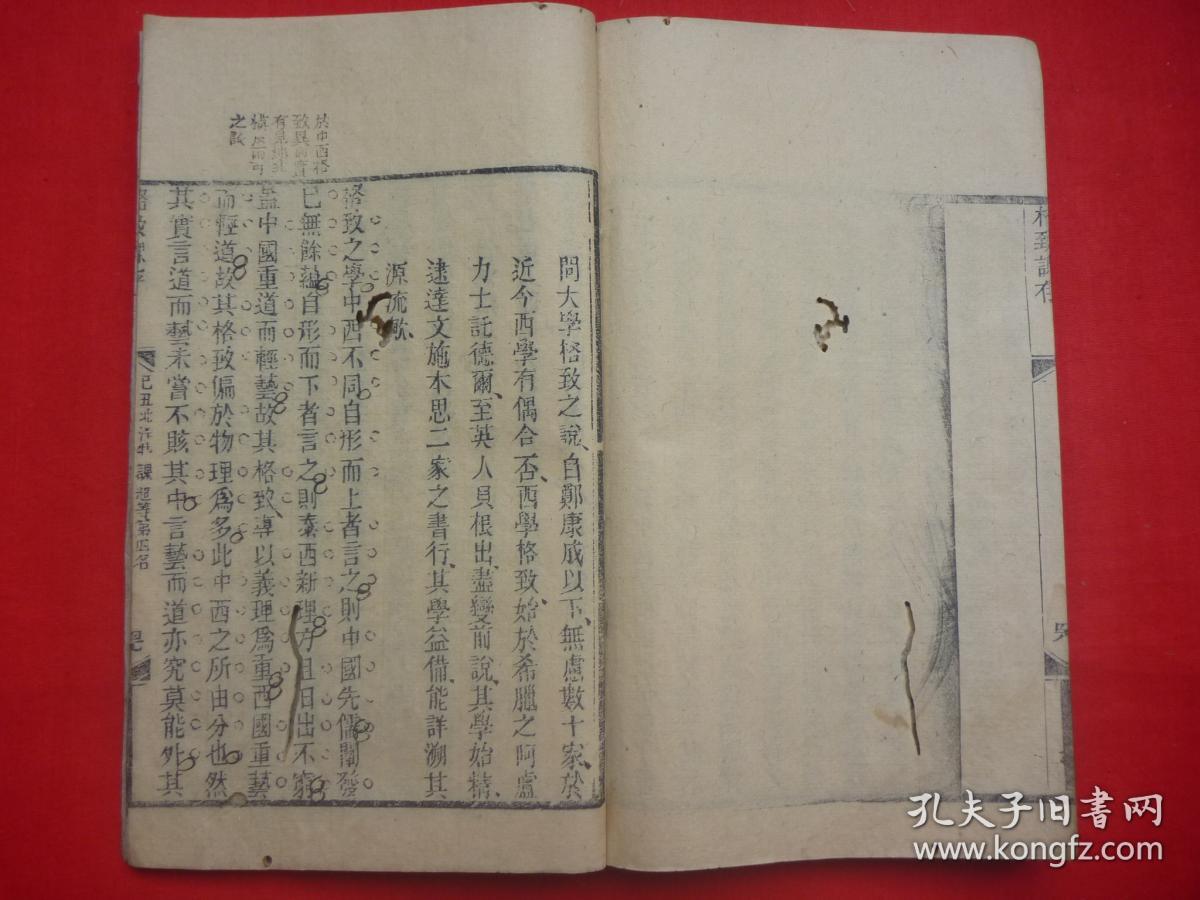 格致課存
問大學格致之說自鄭康成以下無慮數十家於
近今西學有偶合否西學格致始於希臘之阿盧
力士託德爾至英人貝根出盡變前說其學始精
逮達文施本思二家之書行其學益備能詳溯其
源流歟
格致之學中西不同自形而上者言之則中國先儒闡發
已無餘蘊自形而下者言之則泰西新理方且日出不窮
蓋中國重道而輕藝故其格致專以義理爲重西國重藝
而輕道故其格致偏於物理爲多此中西之所由分也然
其實言道而藝未嘗不賅其中言藝而道亦究莫能外其
於中西格
致異
有
之談
格致課存
己丑北洋 課 超等第四名
孔夫子旧书网
www.kongfz.com